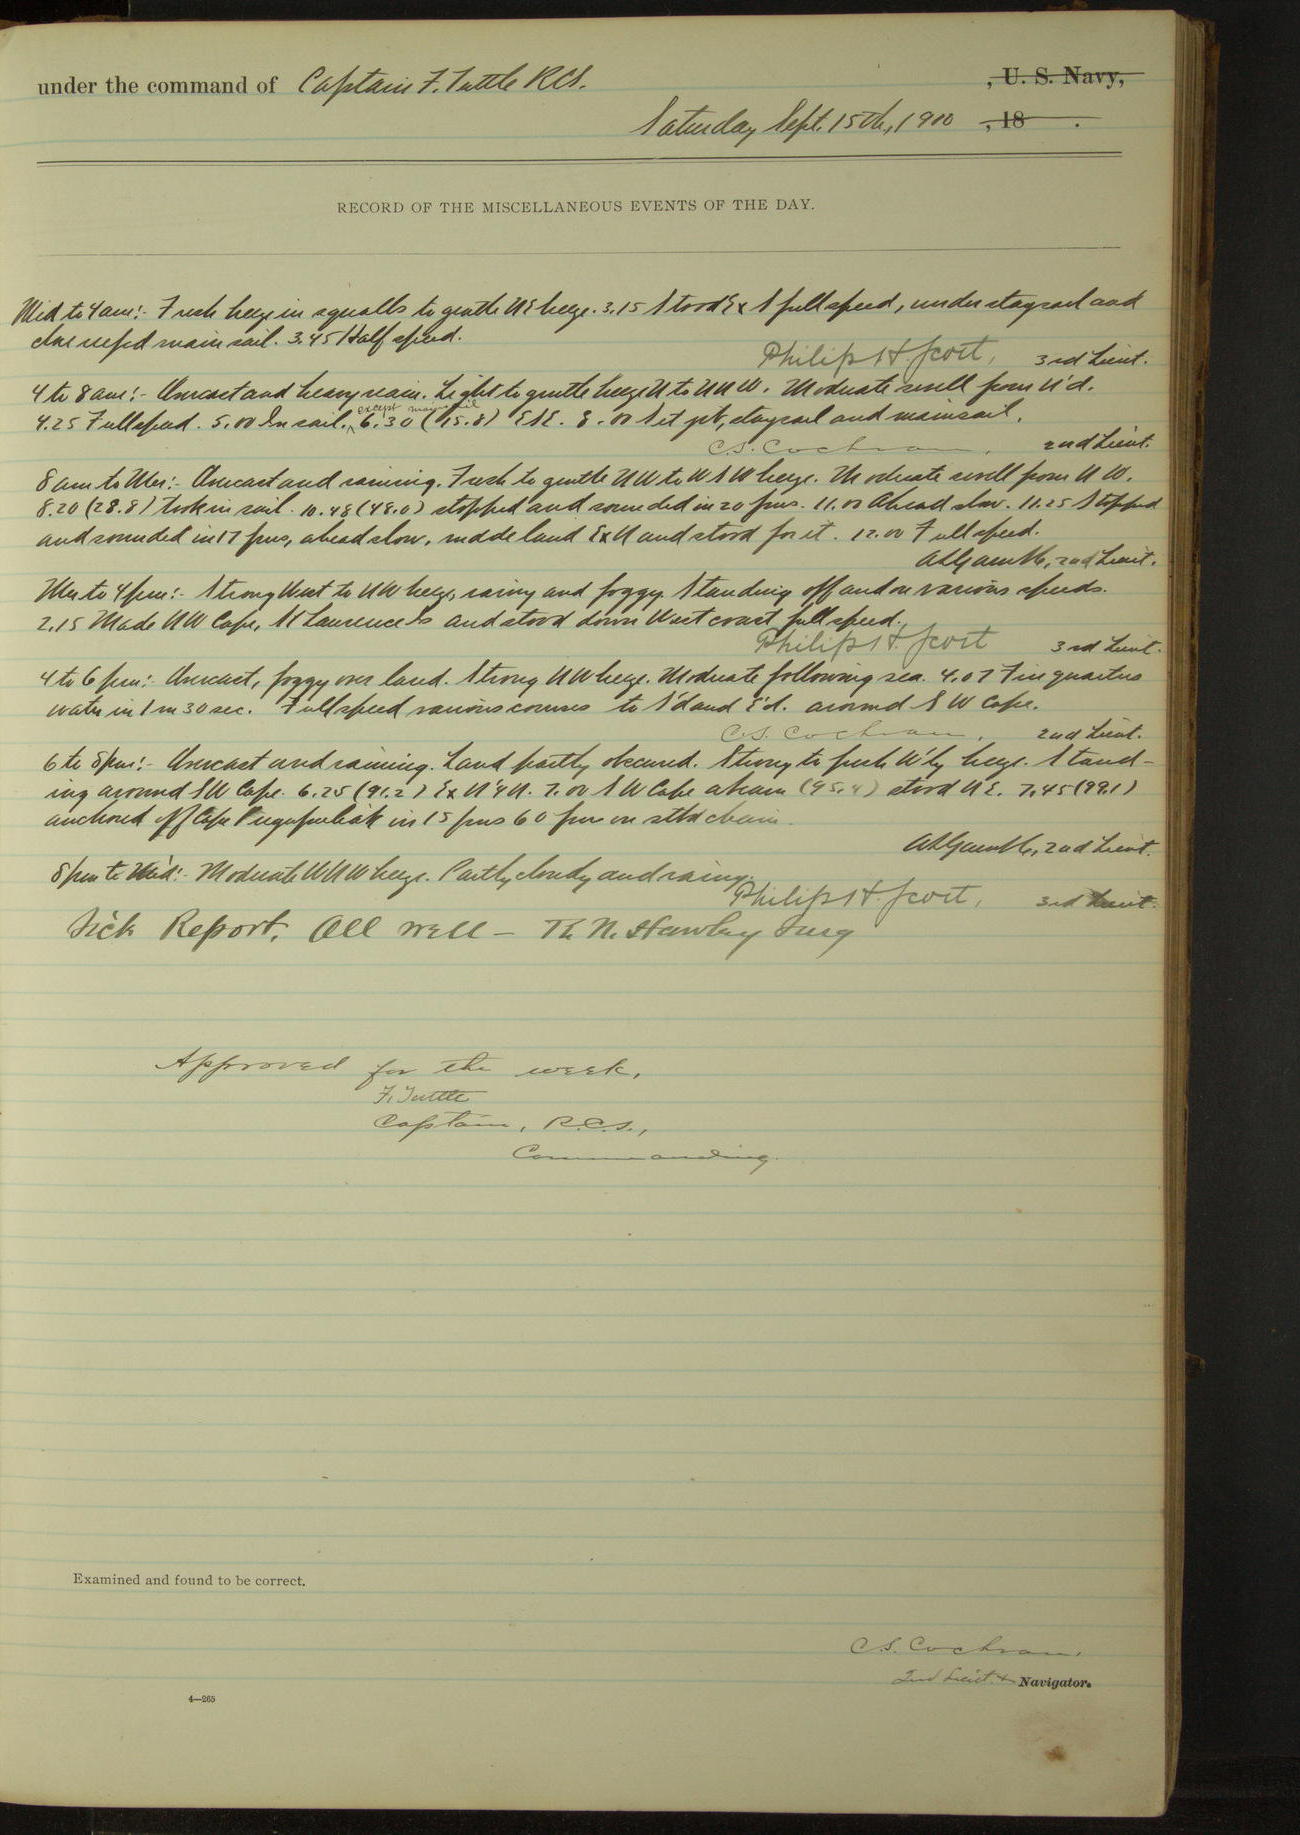 under the command of Captain F. Tuttle RCS. , U. S. Navy,
Saturday Sept. 15th, 1900 , 18 .
RECORD OF THE MISCELLANEOUS EVENTS OF THE DAY.
Mid to 4 am:- Fresh breeze in squalls to gentle NE breeze. 3.15 Stood ExS full speed, under staysail and
close reefed main sail. 3.45 Half speed.
Philip H. Scott, 3rd Lieut.
4 to 8 am:- Overcast and heavy rain. Light to gentle breeze N to NNW. Moderate swell from N'd.
except mainsail
4.25 Full speed. 5.00 In sail. 6.30 (15.8) ESE. 8.00 Set jib, staysail and mainsail.
C.S. Cochran, 2nd Lieut.
8 am to Mer:- Overcast and raining. Fresh to gentle NW to WSW breeze. Moderate swell from NW.
8.20 (28.8) Took in sail. 10.48 (48.0) stopped and sounded in 20 fms. 11.00 Ahead slow. 11.25 Stopped
and sounded in 17 fms, ahead slow, made land ExN and stood for it. 12.00 Full speed.
A L Gamble, 2nd Lieut.
Mer to 4 pm:- Strong West to NW breeze, rainy and foggy. Standing off and on various speeds.
2.15 Made NW Cape, St Laurence Is and stood down West coast full speed.
Philip H. Scott 3rd Lieut.
4 to 6 pm:- Overcast, foggy over land. Strong NW breeze. Moderate following sea. 4.07 Fire quarters
water in 1 m 30 sec. Full speed various courses to S'd and E'd. around SW Cape.
C.S. Cochran, 2nd Lieut.
6 to 8 pm:- Overcast and raining. Land partly obscured. Strong to fresh W'ly breeze. Stand-
ing around SW Cape. 6.25 (91.2) ExN¼N. 7.00 SW Cape abeam (95.4) stood NE. 7.45 (99.1)
anchored off Cape in 15 fms 60 fms on stbd chain.
A L Gamble, 2nd Lieut.
8 pm to Mid:- Moderate WNW breeze. Partly cloudy and rainy.
Philip H. Scott, 3rd Lieut.
Sick Report. All well — Th N. Hawley Surg
Approved for the week.
F. Tuttle
Captain, R.C.S.,
Commanding.
Examined and found to be correct.
C.S. Cochran,
2nd Lieut & Navigator.
4—265